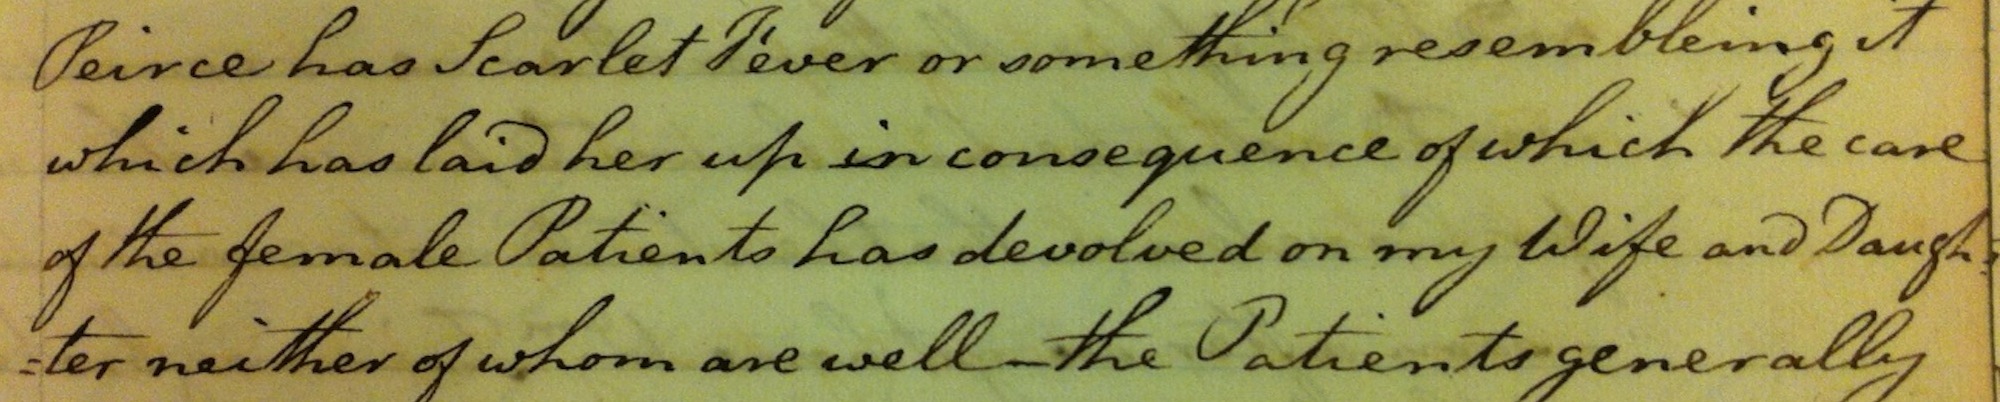 Peirce has Scarlet Fever or something resembleing it
which has laid her up in consequence of which the care
of the female Patients has devolved on my Wife and Daugh=
=ter neither of whom are well - the Patients generally